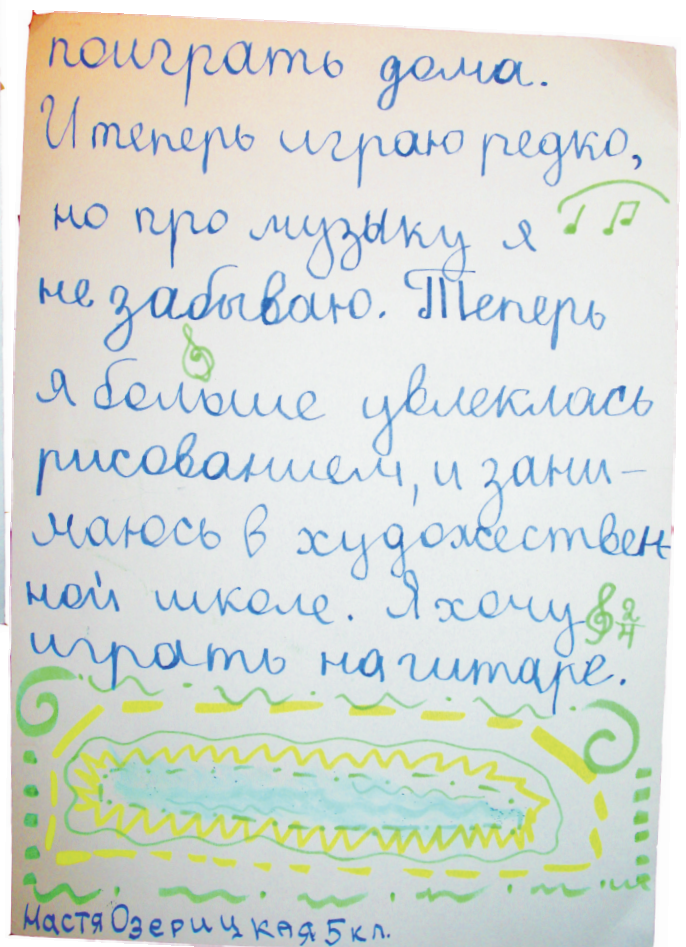 поиграть дома.
И теперь играю редко,
но про музыку я
не забываю. Теперь
я больше увлеклась
рисованием, и зани-
маюсь в художествен-
ной школе. Я хочу
2/4
играть на гитаре.
Настя Озерицкая 5 кл.